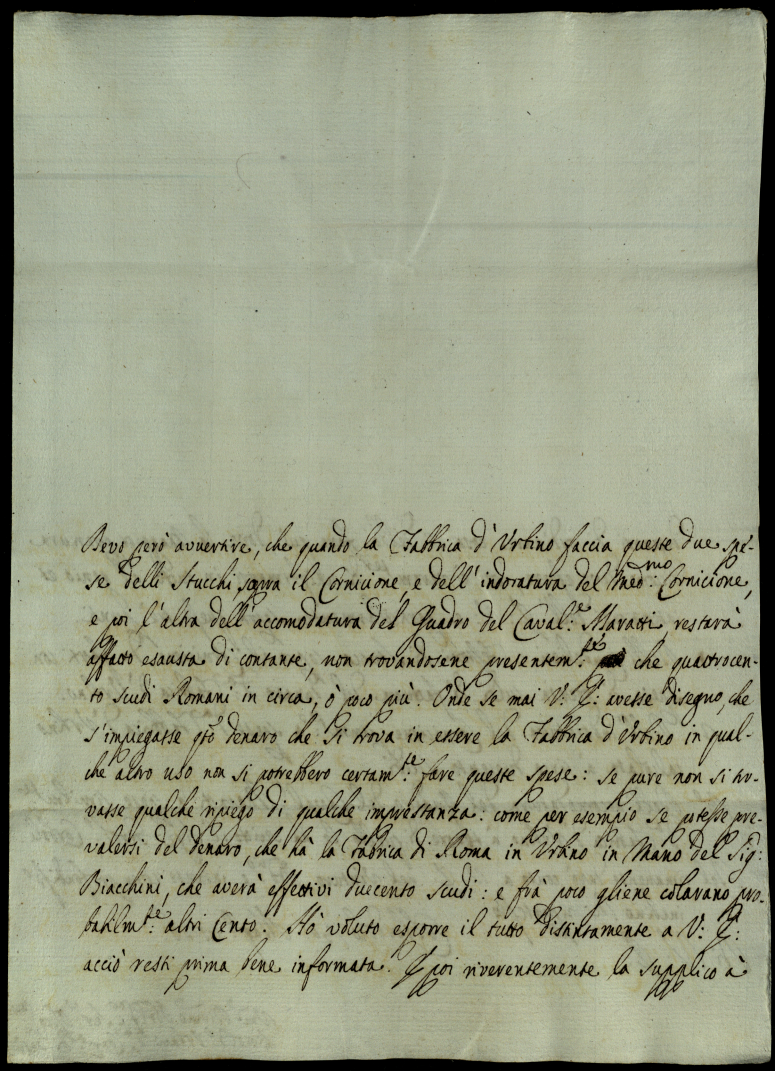 Devo però avvertire, che quando la Fabbrica d'Urbino faccia queste due spe-
se delli Stucchi sopra il Cornicione, e dell'indoratura del med.mo: Cornicione,
e poi l'altra dell'accomodatura del Quadro del Caval.e: Maratti, restarà
affatto esausta di contante, non trovandosene presentem.te: che quattrocen-
to scudi Romani in circa, ò poco più. Onde se mai V: E: avesse disegno, che
s'impiegasse qsto denaro che si trova in essere la Fabbrica d'Urbino in qual-
che altro uso non si potrebbero certam.te: fare queste spese: se pure non si tro-
vasse qualche ripiego di qualche imprestanza: come per esempio se potesse pre-
valersi del denaro, che hà la Fabrica di Roma in Urbino in Mano del Sig:
Biacchini, che averà effettivi duecento scudi: e frà poco gliene colarano pro-
babilm.te: altri Cento. Hò voluto esporre il tutto distintamente a V: E:
acciò resti prima bene informata. E poi riverentemente la supplico à